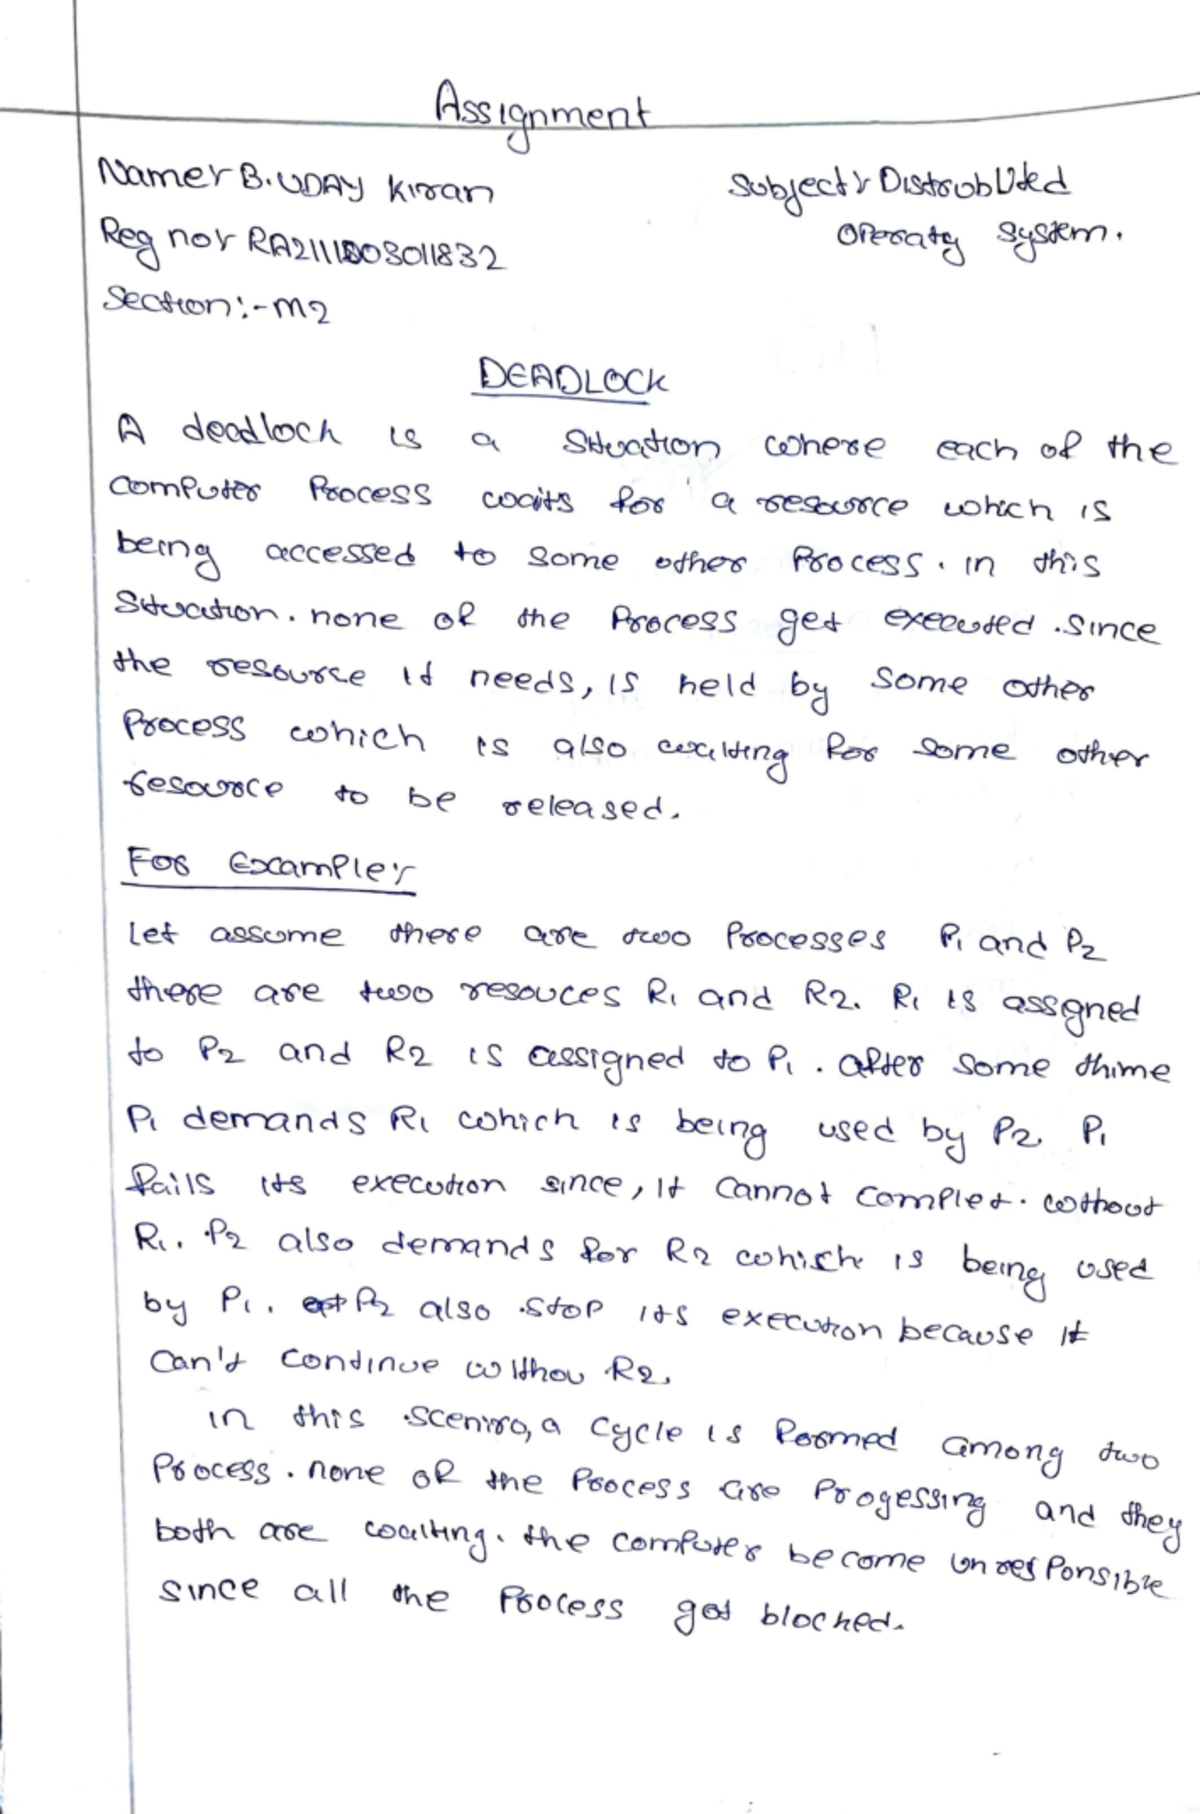 Assignment
Name:- B. UDAY Kiran
Subject:- Distroblited
Reg no:-
Operaty System.
Section:- M2
DEADLOCK
A deadlock is a Situation where each of the
computer Process waits for a resource which is
being accessed to some other Process. in this
Situation. none of the Process get executed. Since
the resource it needs, is held by some other
Process which is also waiting for some other
resource to be released.
For Example:-
Let assume there are two Processes P1 and P2
there are two resouces R1 and R2. R1 is assigned
to P2 and R2 is assigned to P1. after some thime
P1 demands R1 which is being used by P2. P1
fails its execution since, it cannot complet. without
R1. P2 also demands for R2 which is being used
by P1. P2 also stop its execution because it
Can't continue withou R2.
in this sceniro, a cycle is formed among two
Process. none of the Process are Progessing and they
both are waiting. the computer become unresponsible
since all the Process got blocked.